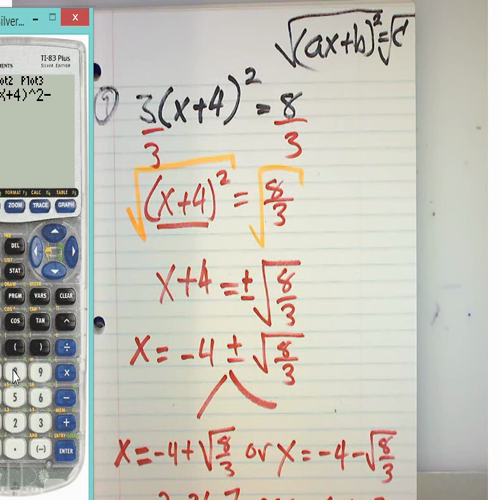 Silver...
TI-83 Plus
SILVER EDITION
Plot3
X+4)^2-
FORMAT CALC TABLE
ZOOM TRACE GRAPH
DEL
STAT
PRGM VARS CLEAR
COS TAN ^
( ) ÷
9 ×
5 6 −
2 3 +
. (−) ENTER
√(ax+b)² = √c
3(x+4)² = 8
3 3
√(x+4)² = √8/3
x+4 = ±√8/3
x = -4 ± √8/3
x = -4+√8/3 or x = -4-√8/3